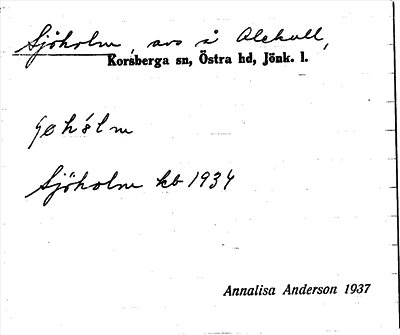 Sjöholm, avs å Alekull,
Korsberga sn, Östra hd, Jönk. l.
Sjöholm kb 1934
Annalisa Anderson 1937